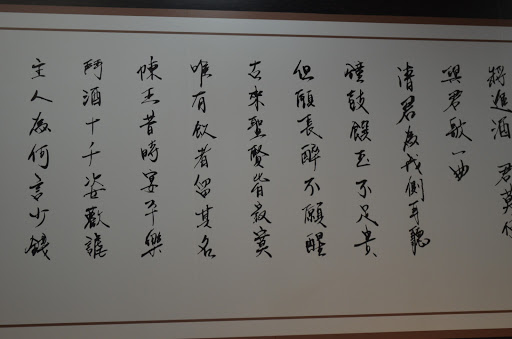 將進酒 君莫
與君歌一曲
請君為我側耳聽
鐘鼓饌玉不足貴
但願長醉不願醒
古來聖賢皆寂寞
唯有飲者留其名
陳王昔時宴平樂
鬥酒十千恣歡謔
主人為何言少錢